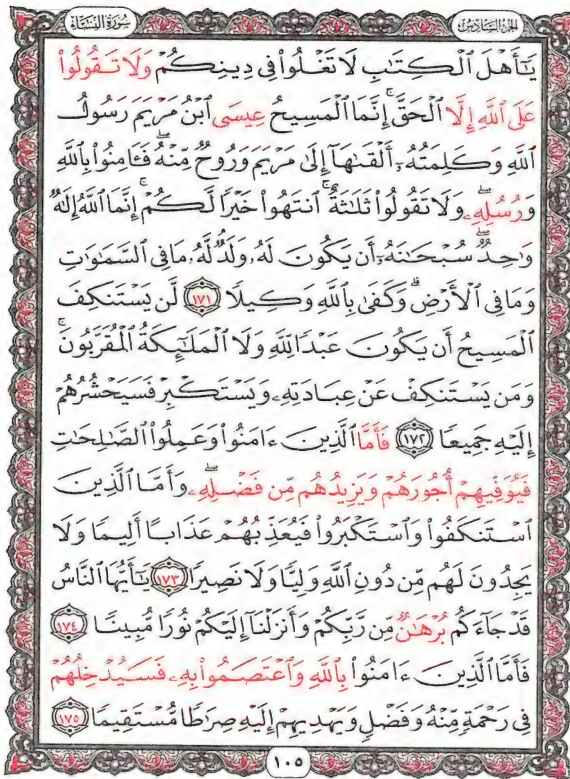 الجزء السادس
سورة النساء
يَٰٓأَهۡلَ ٱلۡكِتَٰبِ لَا تَغۡلُواْ فِي دِينِكُمۡ وَلَا تَقُولُواْ
عَلَى ٱللَّهِ إِلَّا ٱلۡحَقَّۚ إِنَّمَا ٱلۡمَسِيحُ عِيسَى ٱبۡنُ مَرۡيَمَ رَسُولُ
ٱللَّهِ وَكَلِمَتُهُۥٓ أَلۡقَىٰهَآ إِلَىٰ مَرۡيَمَ وَرُوحٞ مِّنۡهُۖ فَـَٔامِنُواْ بِٱللَّهِ
وَرُسُلِهِۦۖ وَلَا تَقُولُواْ ثَلَٰثَةٌۚ ٱنتَهُواْ خَيۡرٗا لَّكُمۡۚ إِنَّمَا ٱللَّهُ إِلَٰهٞ
وَٰحِدٞۖ سُبۡحَٰنَهُۥٓ أَن يَكُونَ لَهُۥ وَلَدٞۘ لَّهُۥ مَا فِي ٱلسَّمَٰوَٰتِ
وَمَا فِي ٱلۡأَرۡضِۗ وَكَفَىٰ بِٱللَّهِ وَكِيلٗا ١٧١ لَّن يَسۡتَنكِفَ
ٱلۡمَسِيحُ أَن يَكُونَ عَبۡدٗا لِّلَّهِ وَلَا ٱلۡمَلَٰٓئِكَةُ ٱلۡمُقَرَّبُونَۚ
وَمَن يَسۡتَنكِفۡ عَنۡ عِبَادَتِهِۦ وَيَسۡتَكۡبِرۡ فَسَيَحۡشُرُهُمۡ
إِلَيۡهِ جَمِيعٗا ١٧٢ فَأَمَّا ٱلَّذِينَ ءَامَنُواْ وَعَمِلُواْ ٱلصَّٰلِحَٰتِ
فَيُوَفِّيهِمۡ أُجُورَهُمۡ وَيَزِيدُهُم مِّن فَضۡلِهِۦۖ وَأَمَّا ٱلَّذِينَ
ٱسۡتَنكَفُواْ وَٱسۡتَكۡبَرُواْ فَيُعَذِّبُهُمۡ عَذَابًا أَلِيمٗا وَلَا
يَجِدُونَ لَهُم مِّن دُونِ ٱللَّهِ وَلِيّٗا وَلَا نَصِيرٗا ١٧٣ يَٰٓأَيُّهَا ٱلنَّاسُ
قَدۡ جَآءَكُم بُرۡهَٰنٞ مِّن رَّبِّكُمۡ وَأَنزَلۡنَآ إِلَيۡكُمۡ نُورٗا مُّبِينٗا ١٧٤
فَأَمَّا ٱلَّذِينَ ءَامَنُواْ بِٱللَّهِ وَٱعۡتَصَمُواْ بِهِۦ فَسَيُدۡخِلُهُمۡ
فِي رَحۡمَةٖ مِّنۡهُ وَفَضۡلٖ وَيَهۡدِيهِمۡ إِلَيۡهِ صِرَٰطٗا مُّسۡتَقِيمٗا ١٧٥
١٠٥